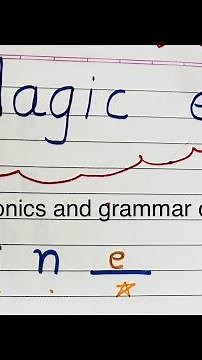 Magic e
onics and grammar
in e